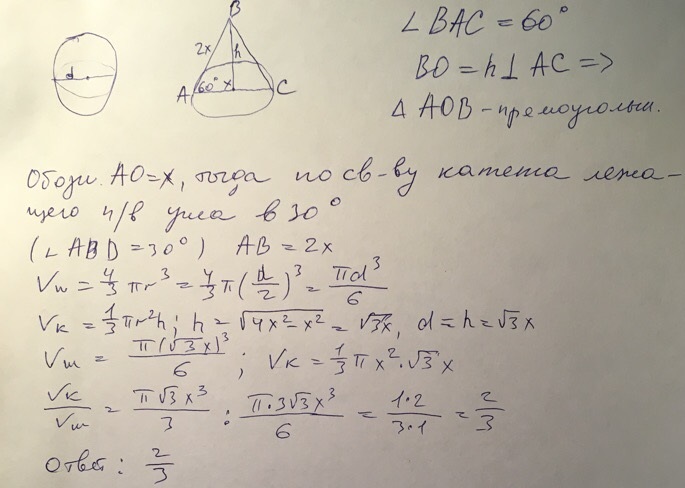 ∠BAC = 60°
BO = h ⊥ AC =>
Δ AOB - прямоугольн.
d
B
2x
h
A 60° x C
Обозн. AO = x, тогда по св-ву катета лежа-
щего н/в угла в 30°
(∠ABD = 30°) AB = 2x
Vш = 4/3 πr³ = 4/3 π(d/2)³ = πd³/6
Vк = 1/3 πr²h; h = √(4x² - x²) = √3x, d = h = √3x
Vш = π(√3x)³/6 ; Vк = 1/3 πx²·√3x
Vк/Vш = π√3x³/3 : π·3√3x³/6 = 1·2/3·1 = 2/3
Ответ: 2/3